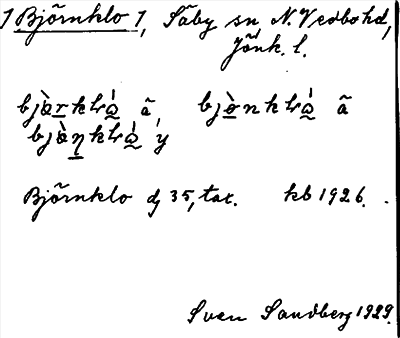 1 Björnklo 1, Säby sn N. Vedbo hd,
Jönk. l.
bjò̱rkló̰ ã, bjò̱nkló̰ ã
bjòŋkló̰ y
Björnklo dj 35, tax. kb 1926.
Sven Sandberg 1929.